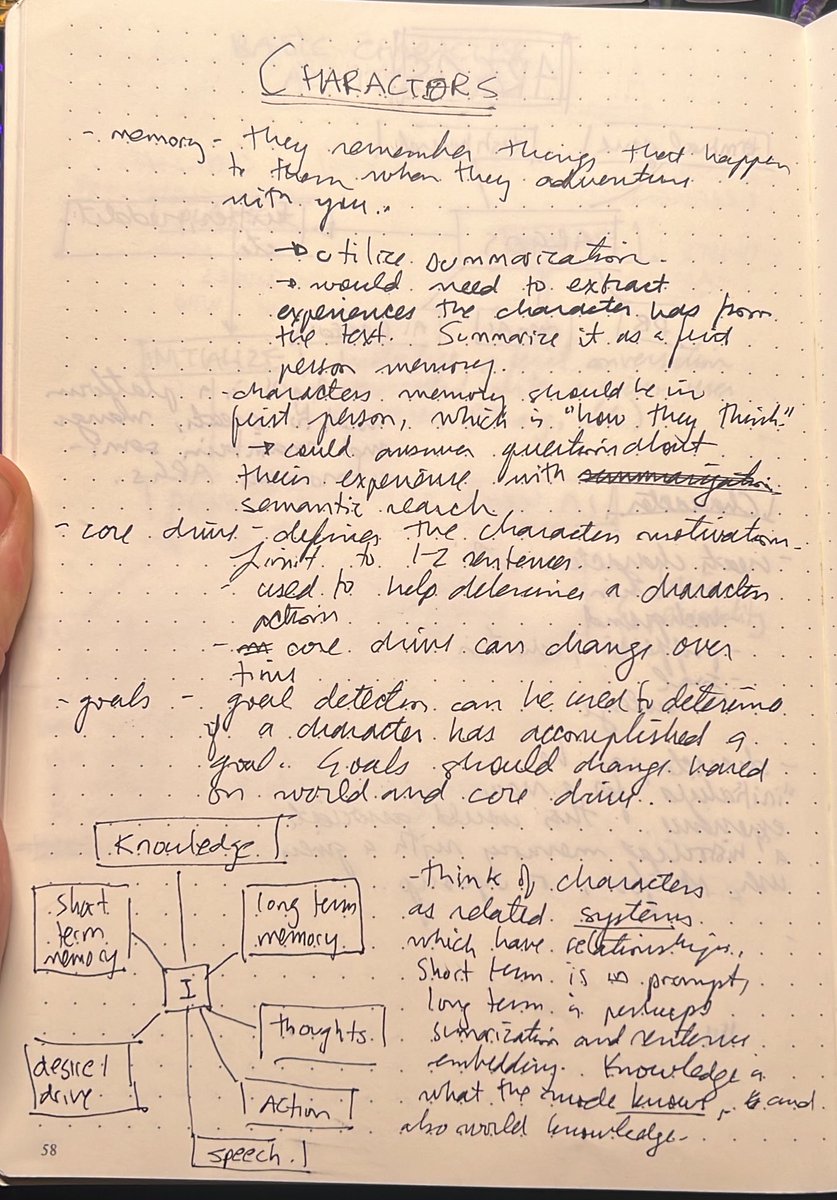 CHARACTORS
- memory - they remember things that happen
to them when they adventure
with you..
→ utilize summarization.
→ would need to extract
experiences the character has from
the text. Summarize it as a first
person memory.
- characters memory should be in
first person, which is "how they think"
→ could answer questions about
their experience with summarization
semantic search
- core drive - defines the characters motivation.
Limit to 1-2 sentences.
- used to help determines a character
action
- core drive can change over
time
- goals - goal detection can be used to determine
if a character has accomplished a
goal. Goals should change based
on world and core drive.
Knowledge
short
term
memory
long term
memory
I
thoughts
desire/
drive
Action
speech.
- think of characters
as related systems
which have relationships,
short term is in prompt,
long term is perhaps
sumarization and sentence
embedding. Knowledge is
what the mode knows, and
also world knowledge.
58